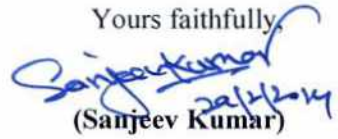 Yours faithfully,
Sanjeev Kumar
(Sanjeev Kumar)